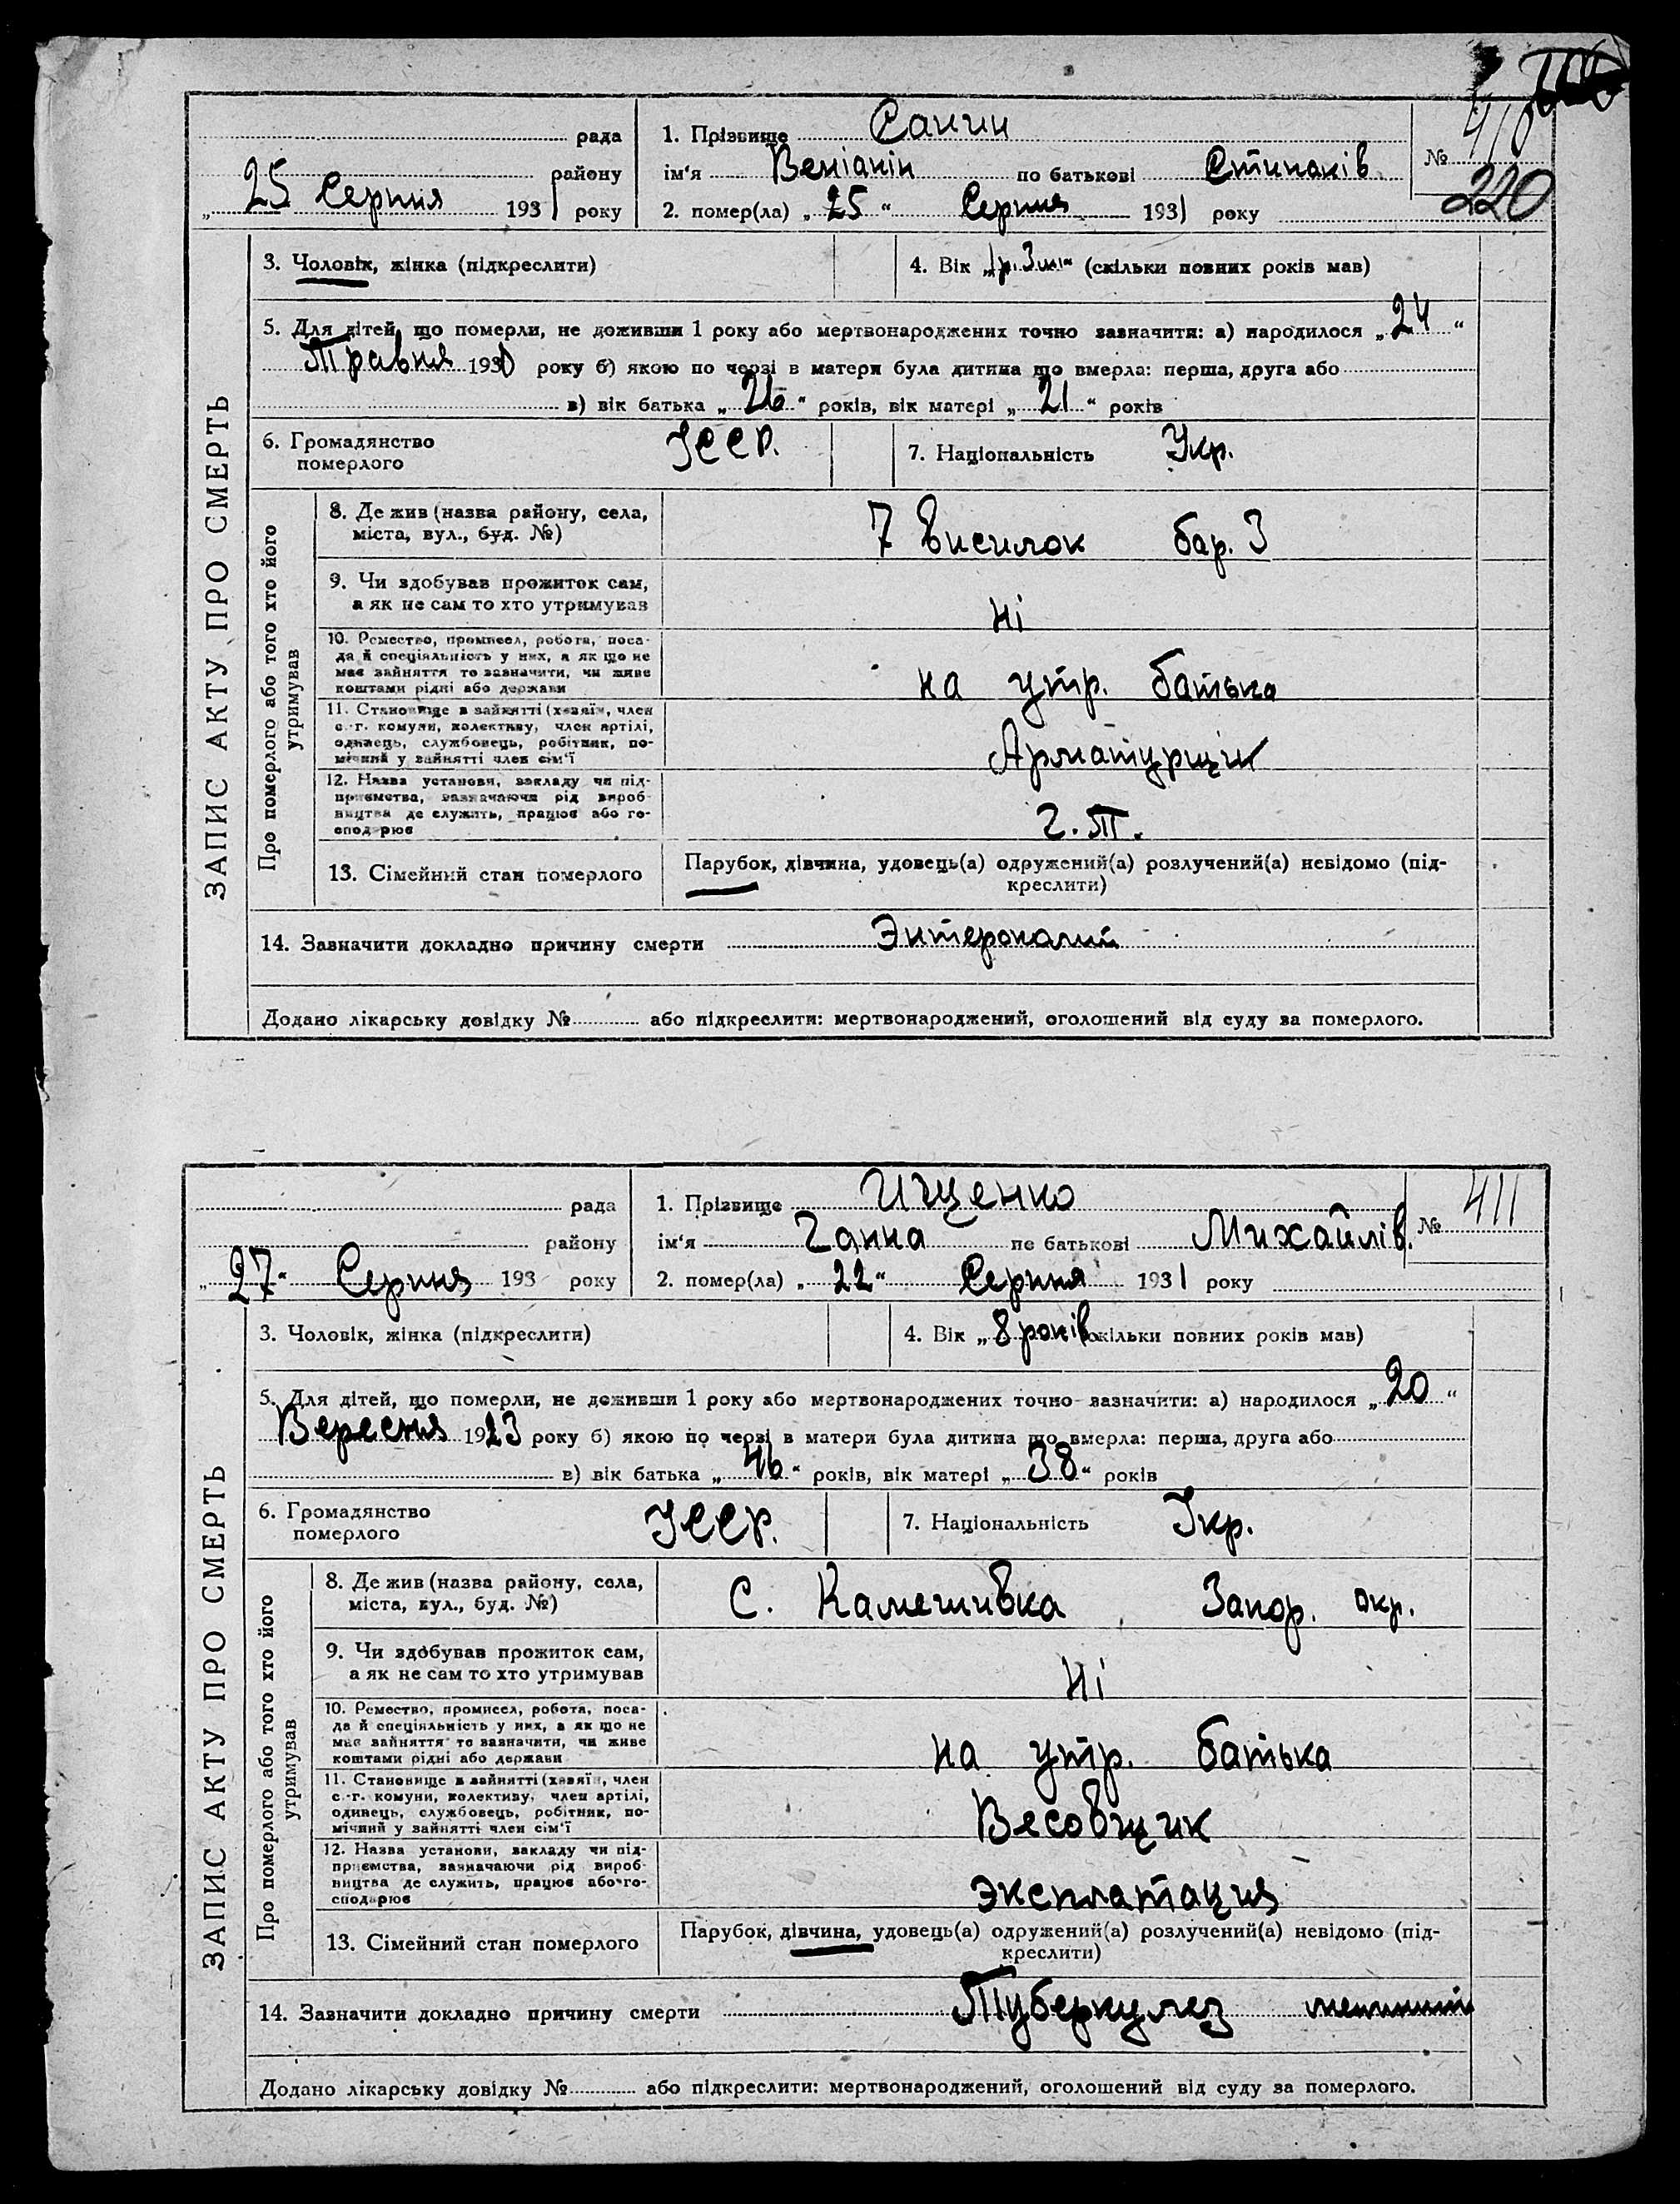 ЗАПИС АКТУ ПРО СМЕРТЬ
рада
району
„ 25 Серпня 1931 року
1. Прізвище Санин
ім'я Веніанін по батькові
№ 410
220
2. помер(ла) „ 25 “ Серпня 1931 року
3. Чоловік, жінка (підкреслити)
4. Вік „1р. 3 м.“ (скільки повних років мав)
5. Для дітей, що померли, не доживши 1 року або мертвонароджених точно зазначити: а) народилося „ 24 “
Травня 1930 року б) якою по черзі в матери була дитина що вмерла: перша, друга або
в) вік батька „ 26 “ років, вік матері „ 21 “ років
6. Громадянство
померлого
УССР.
7. Національність Укр.
Про померлого або того хто його
утримував
8. Де жив (назва району, села,
міста, вул., буд. №)
7 Висилок бар. 3
9. Чи здобував прожиток сам,
а як не сам то хто утримував
Ні
10. Ремество, промисел, робота, поса-
да й спеціяльність у них, а як що не
має зайняття то зазначити, чи живе
коштами рідні або держави
на утр. батька
11. Становище в зайнятті (хазяїн, член
с.-г. комуни, колективу, член артілі,
одинець, службовець, робітник, по-
мічний у зайнятті член сім'ї
Арматурщик
12. Назва установи, закладу чи під-
приємства, зазначаючи рід вироб-
ництва де служить, працює або го-
сподарює
Г. П.
13. Сімейний стан померлого
Парубок, дівчина, удовець(а) одружений(а) розлучений(а) невідомо (під-
креслити)
14. Зазначити докладно причину смерти Энтероколит
Додано лікарську довідку № або підкреслити: мертвонароджений, оголошений від суду за померлого.
ЗАПИС АКТУ ПРО СМЕРТЬ
рада
району
„ 27 “ Серпня 193 року
1. Прізвище Ищенко
ім'я Ганна по батькові Михайлів.
№ 411
2. помер(ла) „ 22 “ Серпня 1931 року
3. Чоловік, жінка (підкреслити)
4. Вік „ 8 років скільки повних років мав)
5. Для дітей, що померли, не доживши 1 року або мертвонароджених точно зазначити: а) народилося „ 20 “
Вересня 1923 року б) якою по черзі в матери була дитина що вмерла: перша, друга або
в) вік батька „ 46 “ років, вік матері „ 38 “ років
6. Громадянство
померлого
УССР.
7. Національність Укр.
Про померлого або того хто його
утримував
8. Де жив (назва району, села,
міста, вул., буд. №)
С. Камешивка Запор. окр.
9. Чи здобував прожиток сам,
а як не сам то хто утримував
Ні
10. Ремество, промисел, робота, поса-
да й спеціяльність у них, а як що не
має зайняття то зазначити, чи живе
коштами рідні або держави
на утр. батька
11. Становище в зайнятті (хазяїн, член
с.-г. комуни, колективу, член артілі,
одинець, службовець, робітник, по-
мічний у зайнятті член сім'ї
Весовщик
12. Назва установи, закладу чи під-
приємства, зазначаючи рід вироб-
ництва де служить, працює або го-
сподарює
Эксплатация
13. Сімейний стан померлого
Парубок, дівчина, удовець(а) одружений(а) розлучений(а) невідомо (під-
креслити)
14. Зазначити докладно причину смерти Туберкулез
Додано лікарську довідку № або підкреслити: мертвонароджений, оголошений від суду за померлого.